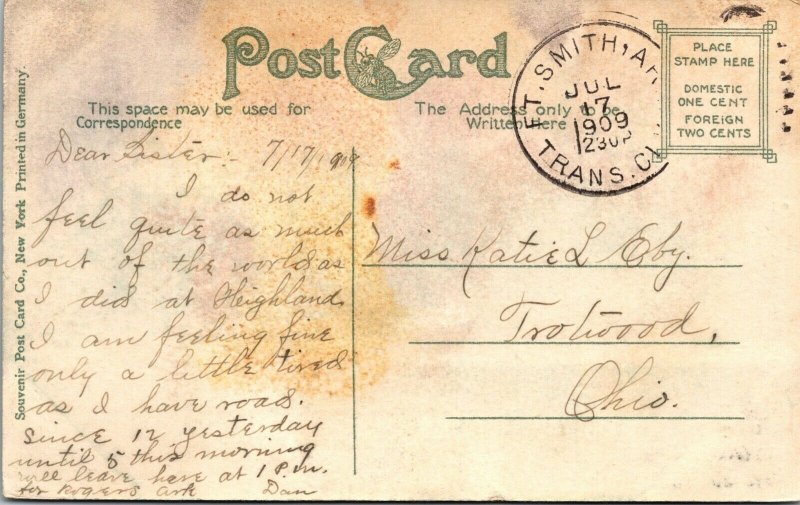 Post Card
This space may be used for
Correspondence
The Address only to be
Written Here
PLACE
STAMP HERE
DOMESTIC
ONE CENT
FOREIGN
TWO CENTS
FT. SMITH, AR
JUL
17
1909
230P
TRANS. CL
Souvenir Post Card Co., New York Printed in Germany.
Dear Sister:- 7/17/1909
I do not
feel quite as much
out of the world as
I did at Heighland
I am feeling fine
only a little tired
as I have road.
since 12 yesterday
until 5 this morning
will leave here at 1 P.m.
for Rogers Ark Dan
Miss Katie L Eby.
Trotwood,
Ohio.